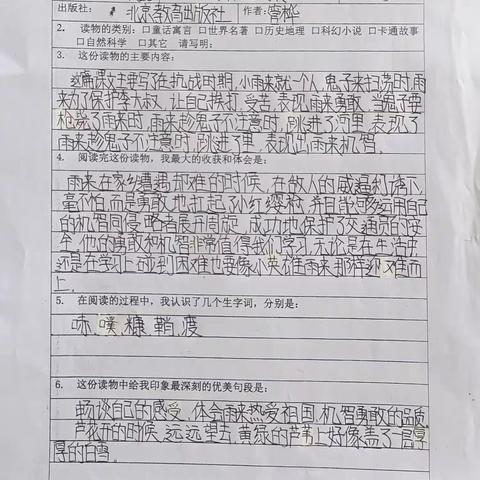 出版社： 北京教育出版社 作者：管桦
2. 读物的类别：口童话寓言 口世界名著 口历史地理 口科幻小说 口卡通故事
口自然科学 口其它 请写明：
3. 这份读物的主要内容：
这篇课文主要写了在抗战时期，小雨来就一个人，鬼子来扫荡时，雨
来为了保护李大叔，让自己挨打，受苦，表现雨来勇敢，当鬼子要
枪毙了雨来时，雨来趁鬼子不注意时，跳进了河里，表现了
雨来趁鬼子不注意时，跳进了里，表现出雨来机智。
4. 阅读完这份读物，我最大的收获和体会是：
雨来在家乡遭遇却难的时候，在敌人的威逼利诱下，
毫不怕，而是勇敢地扛起了小红缨枪，并且能够运用自己
的机智同侵略者展开周旋，成功地保护了交通员的安
全，他的勇敢和机智非常值得我们学习，无论是在生活中
还是在学习上碰到困难也要像小英雄雨来那样迎难而
上。
5. 在阅读的过程中，我认识了几个生字词，分别是：
啼、噗、糠、鞘、瘦
6. 这份读物中给我印象最深刻的优美句段是：
畅谈自己的感受，体会雨来热爱祖国，机智勇敢的品质
芦花开的时候，远远望去，黄绿的芦苇上好像盖了一层厚
厚的白雪。